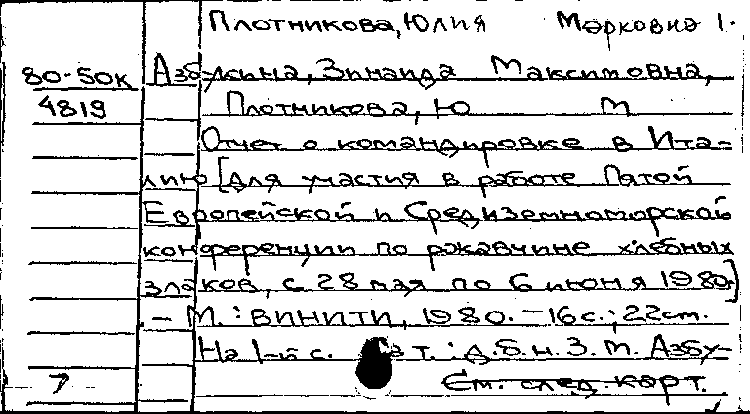 Плотникова, Юлия Марковна 1.
80-50к Азбукина, Зинаида Максимовна,
4819 Плотникова, Ю М
Отчет о командировке в Ита-
лию [для участия в работе Пятой
Европейской и Средиземноморской
конференции по ржавчине хлебных
злаков, с 28 мая по 6 июня 1980]
- М.: ВИНИТИ, 1980. - 16 с.; 22 см.
На 1-й с. авт.: д.б.н. З. М. Азбу-
См. след. карт.